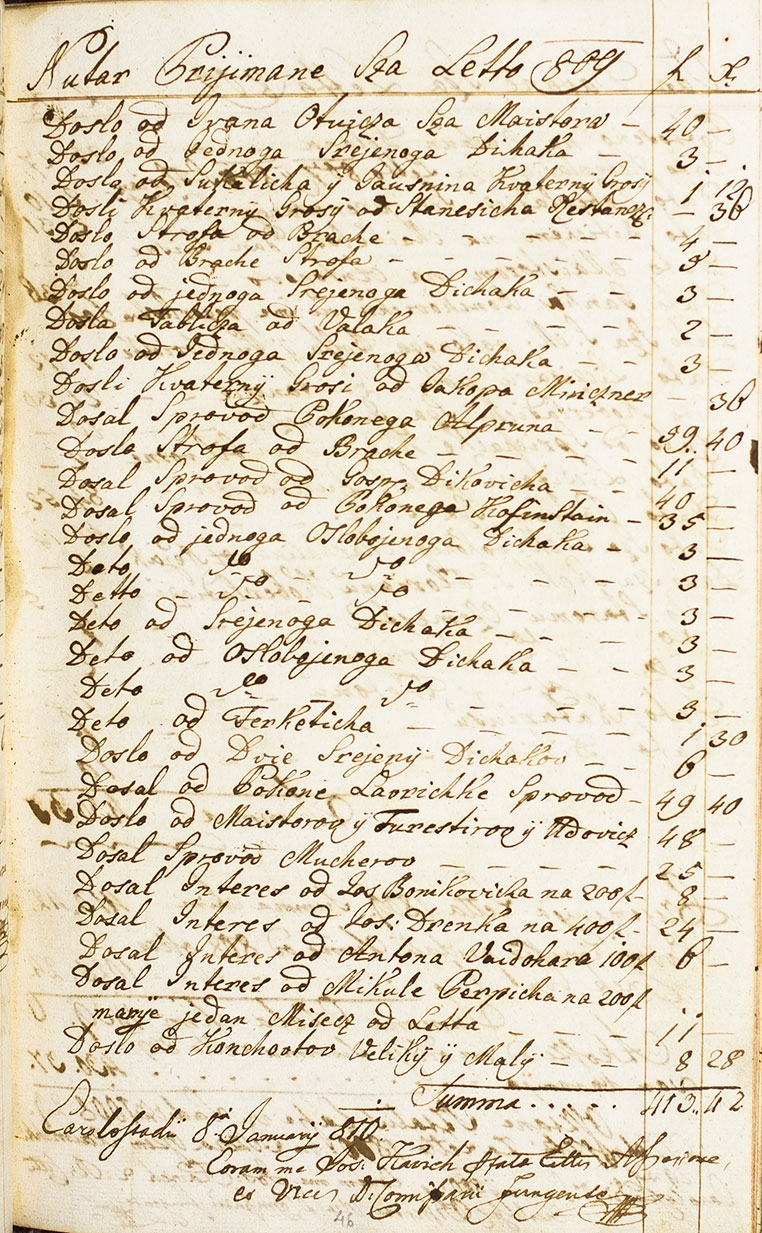 Nutar Prijimane Sza Letto 809 f. x.
Doslo od Ivana Otuicza Sza Maistora — 40 —
Doslo od Jednoga Srejenoga Dichaka — 3 —
Doslo od Sukalicha ÿ Pausnina Kvaternÿ Grosÿ 1 12
Dosli Kvaternÿ Grosÿ od Stanesicha — 36
Doslo Strofa od Brache — — — — 4 —
Doslo od Brache Strofa — — — — 3 —
Doslo od jednoga Srejenoga Dichaka — 3 —
Dosla Tablicza od Valaka — — — — 2 —
Doslo od Jednoga Srejenoga Dichaka — — 3 —
Dosli Kvaternÿ Grosi od Jakopa — 36
Dosal Sprovod Pokonega Alpruna — — 39 40
Doslo Strofa od Brache — — — — 11 —
Dosal Sprovod od Gosp. Dikovicha — 40 —
Dosal Sprovod od Pokonega Kofinstain — 35 —
Doslo od jednoga Oslobojenoga Dichaka — 3 —
Deto — — — 3 —
Detto — — — 3 —
Deto od Srejenoga Dichaka — — — 3 —
Deto od Oslobojenoga Dichaka — — 3 —
Deto — — — 3 —
Deto od Ferketicha — — — — 1 30
Doslo od Dvie Srejenÿ Dichakov — — 6 —
Dosal od Pokone Lavrichke Sprovod — 49 40
Doslo od Maistorov ÿ Furestirov ÿ Udovicz 48 —
Dosal Sprovod Mucherov — — — — 25 —
Dosal Interes od Jos Bonikovicha na 200 f — 8 —
Dosal Interes od Jos: Drenka na 400 f — 24 —
Dosal Interes od Antona Vaidohara 100 f 6 —
Dosal Interes od Mikule Perpicha na 200 f
manÿe jedan Misecz od Letta — — — 11 —
Doslo od Konchovtov Velikÿ ÿ Malÿ — — 8 28
Summa . . . . . . 413 .. 42
Carolostadii 8 Januarÿ 810.
Coram me Jos: